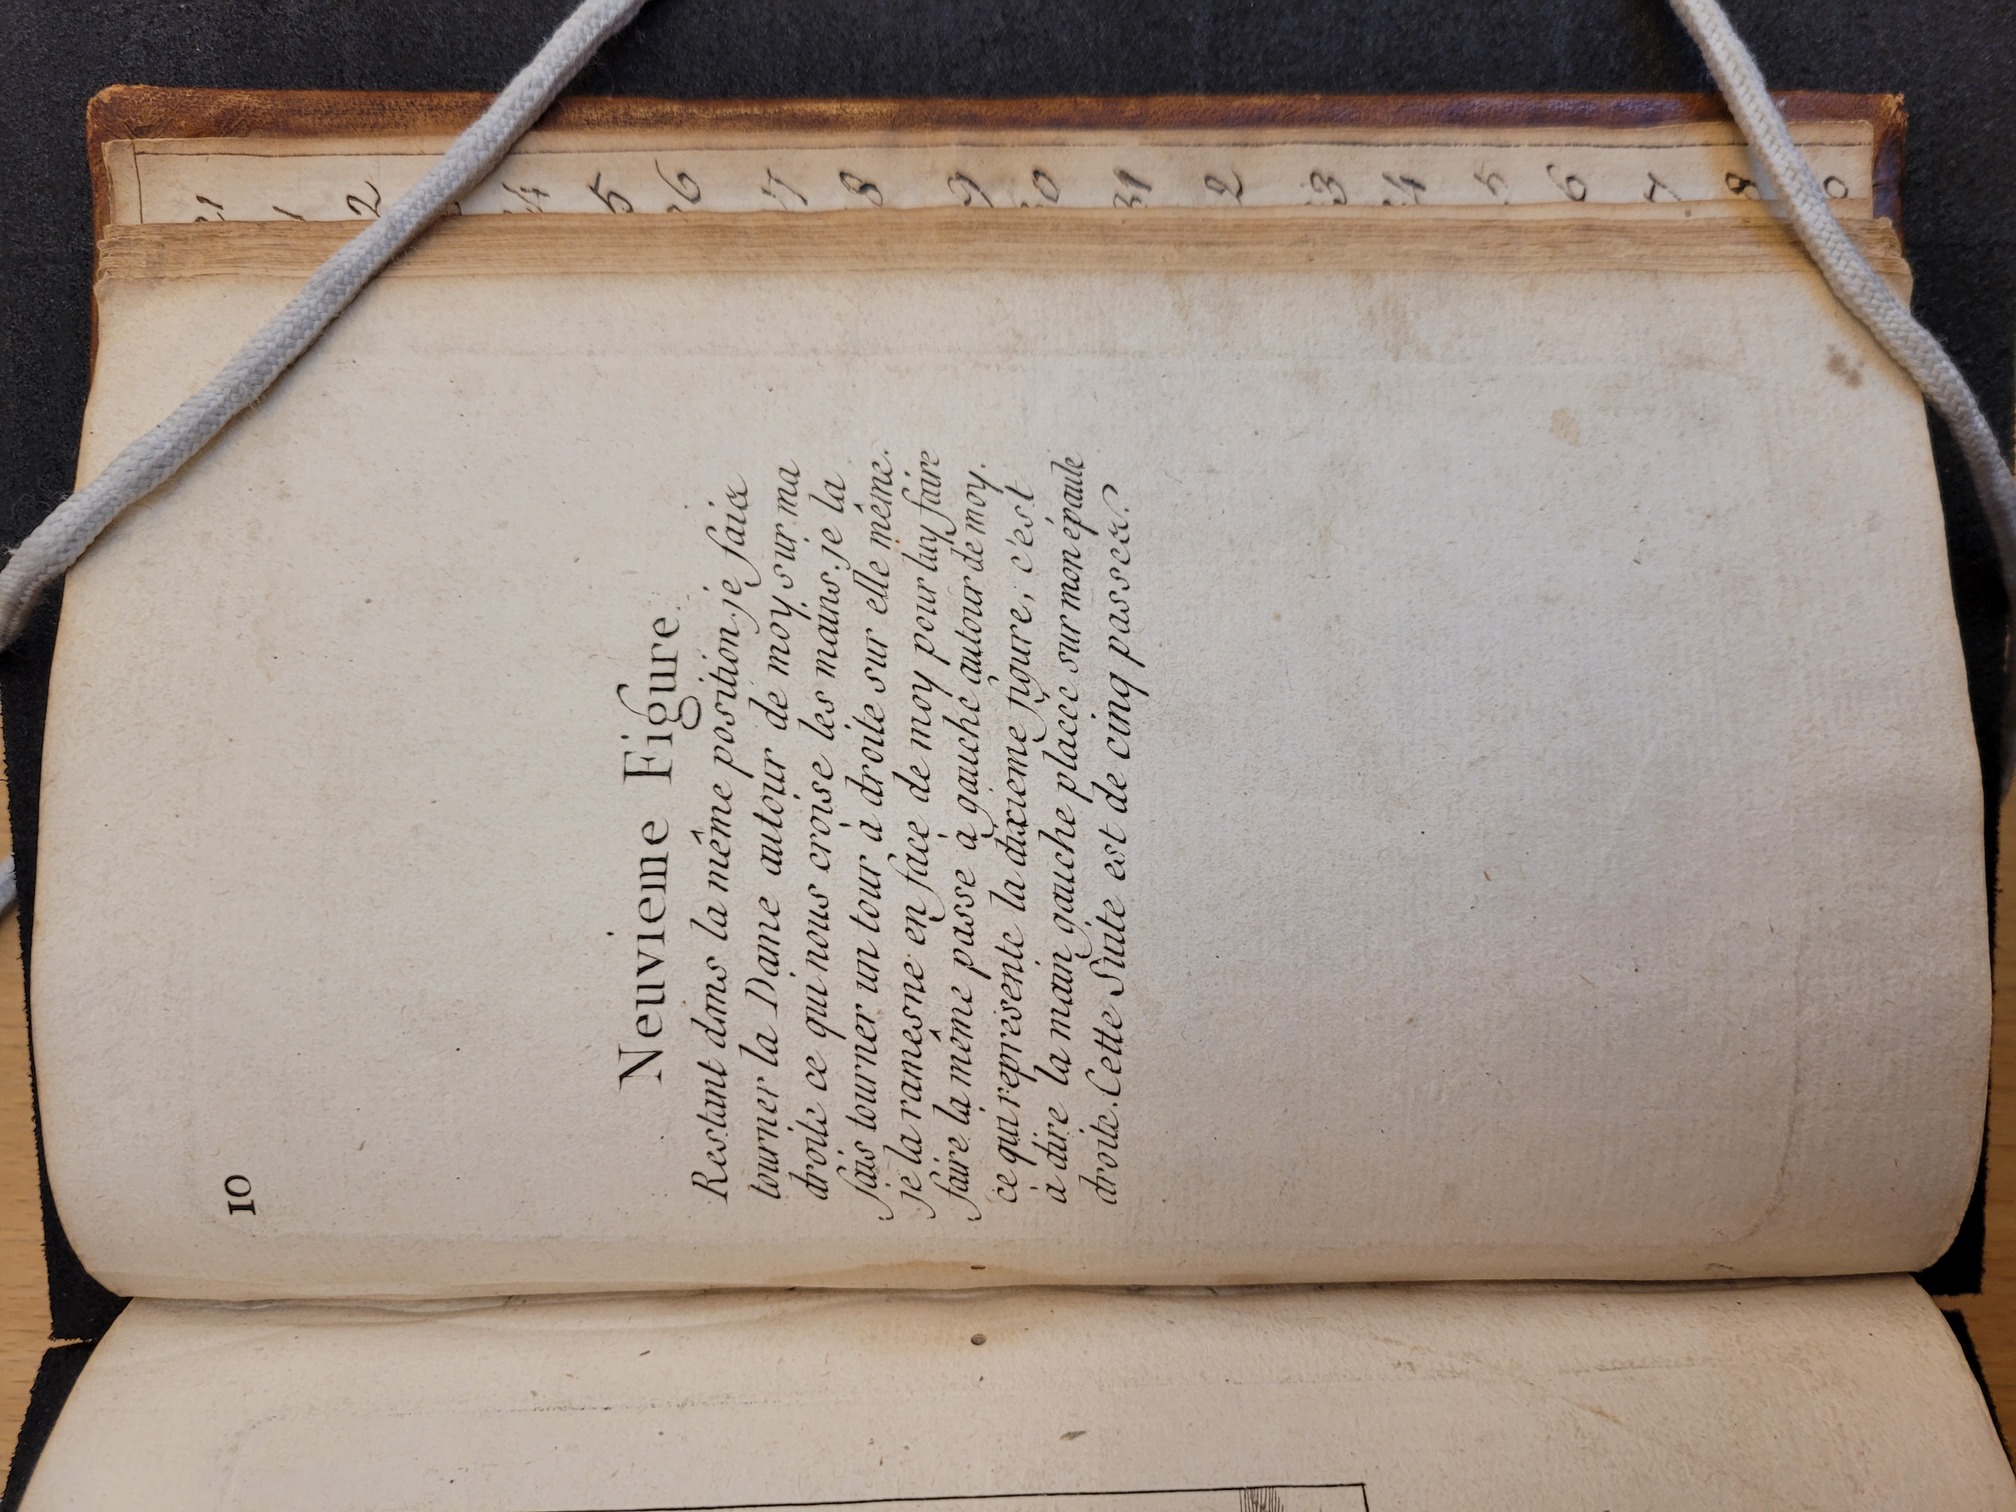 10
Neuvieme Figure.
Restant dans la même position, je fais
tourner la Dame autour de moy sur ma
droite ce qui nous croise les mains. je la
fais tourner un tour à droite sur elle même.
je la ramesne en face de moy pour luy faire
faire la même passe à gauche autour de moy.
ce qui represente la dixieme figure, c'est
à dire la main gauche placée sur mon épaule
droite. Cette Suite est de cinq passes.
1
2
4
5
6
7
8
9
0
31
2
3
4
5
6
7
8
0